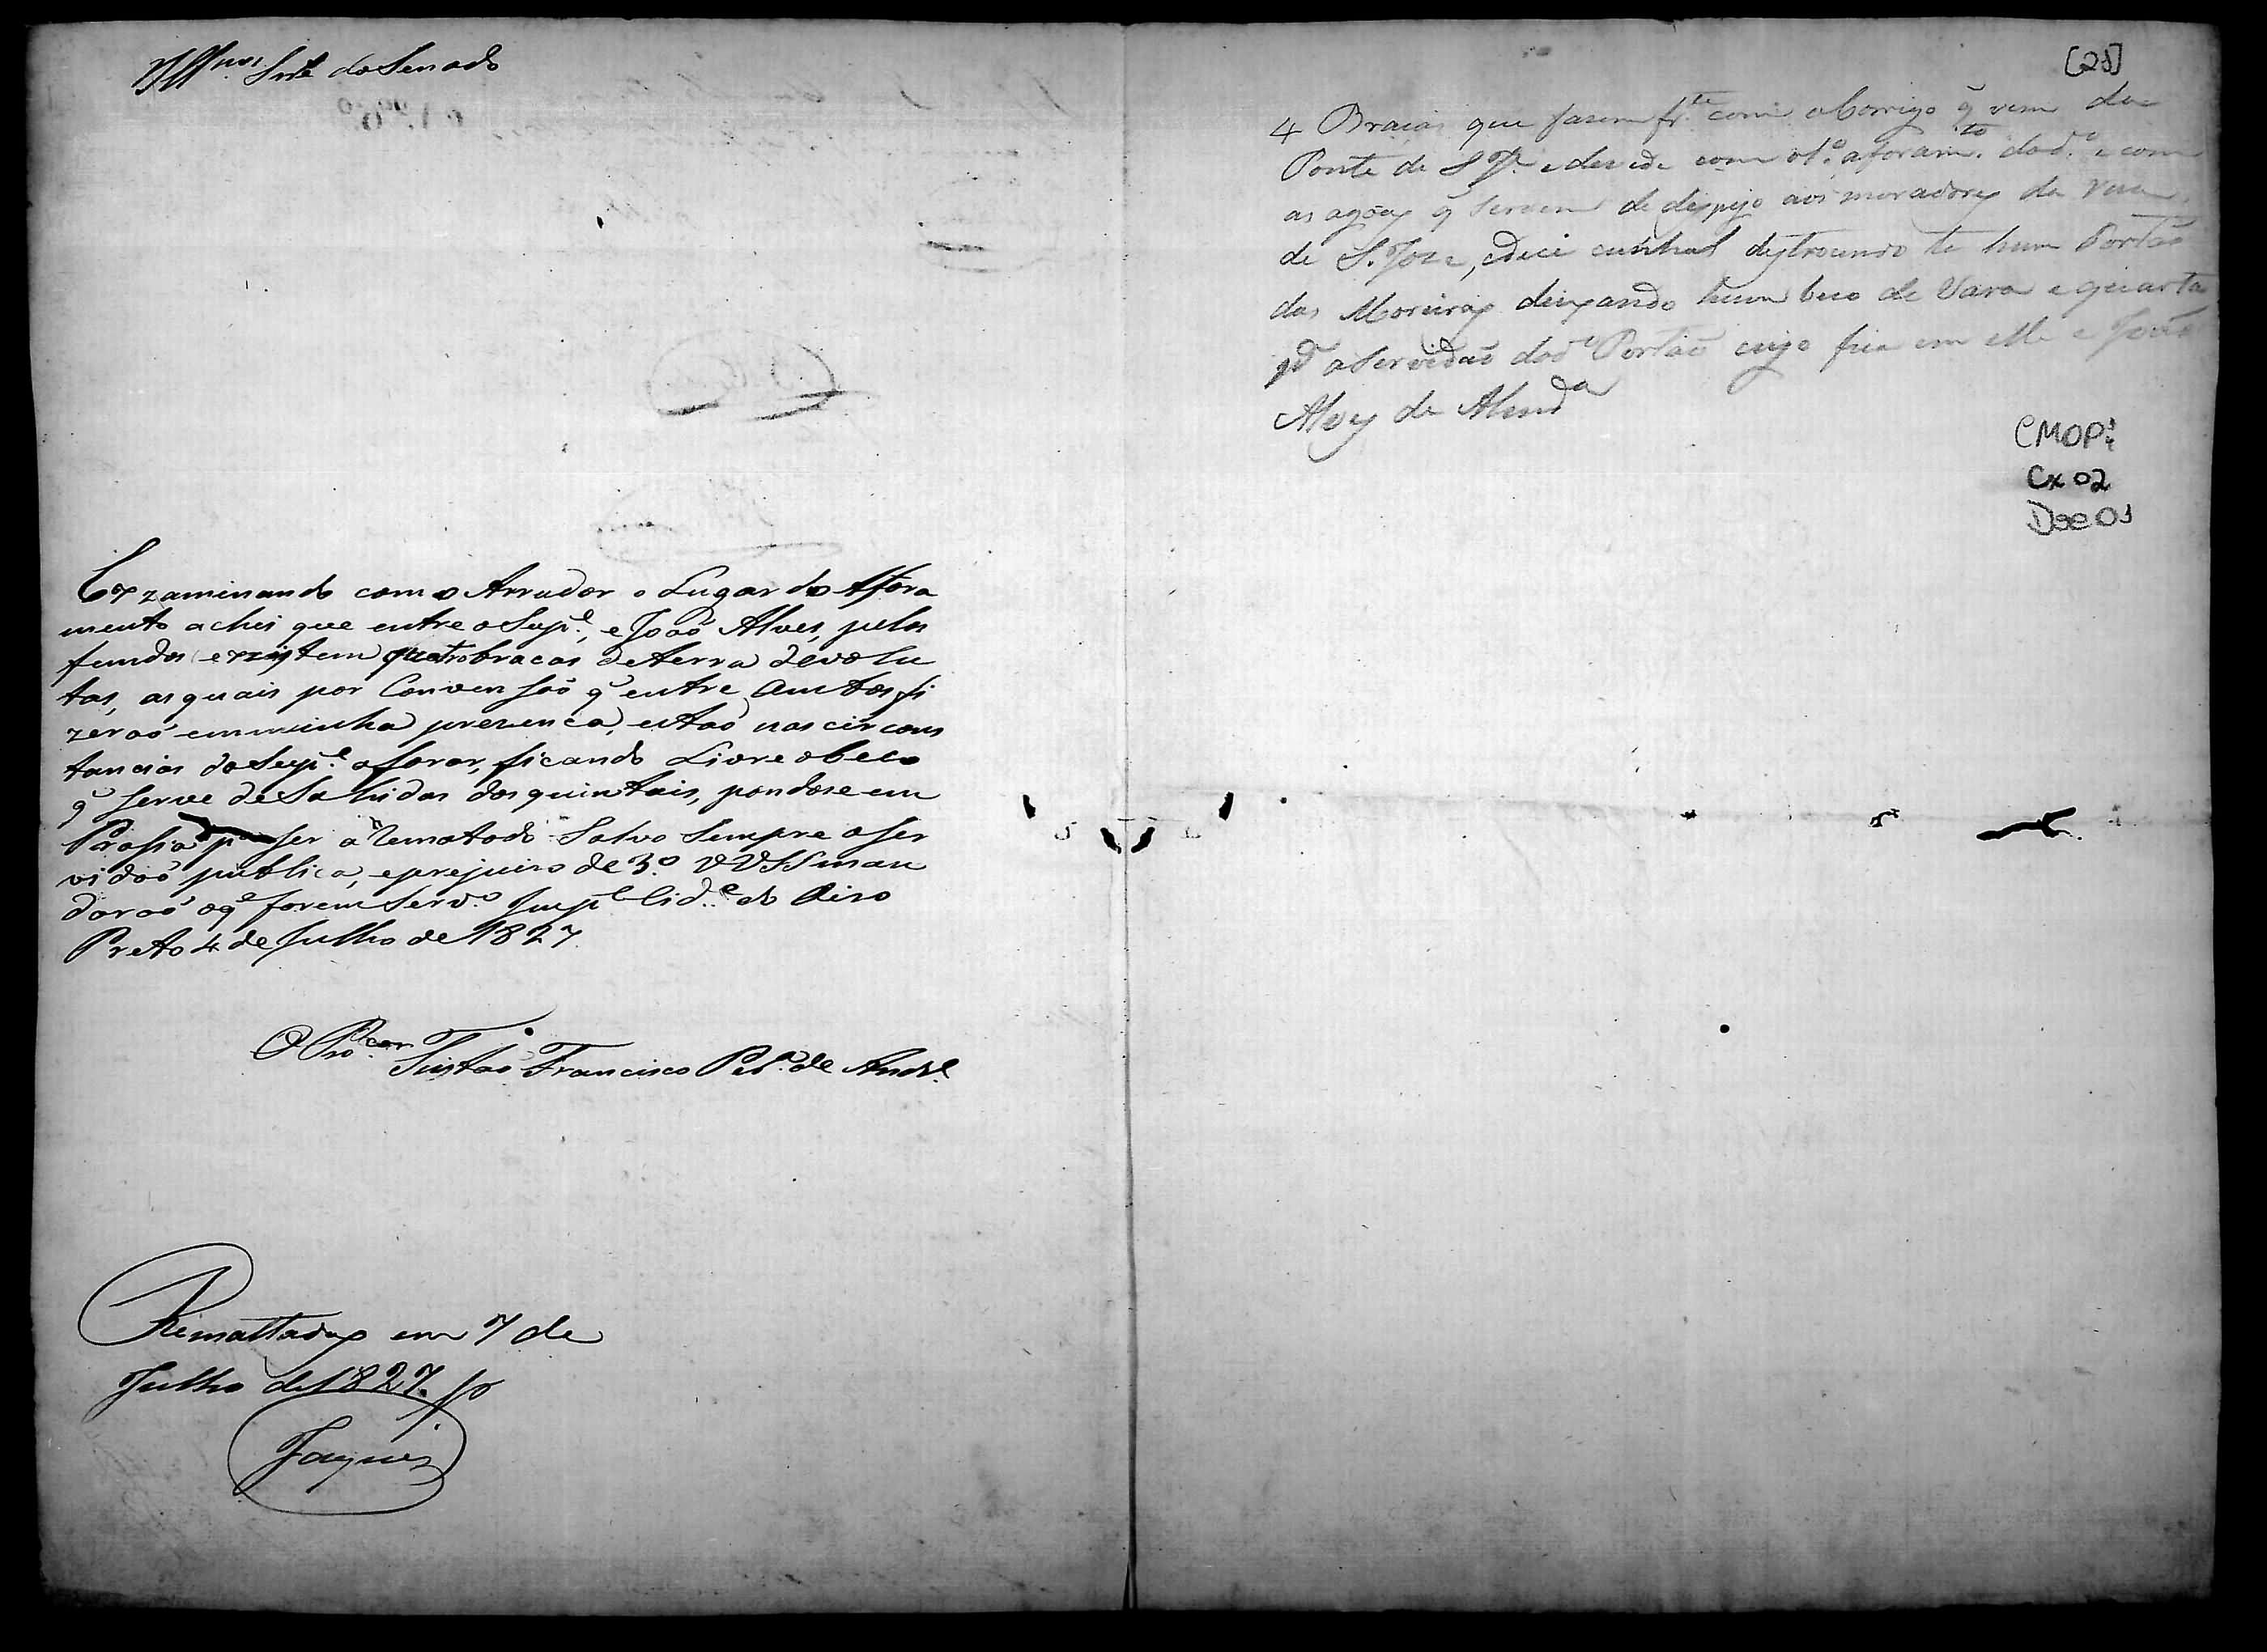 Illmos. Snrs. do Senado
Exzaminando com o Arruador o Lugar do Afora
mento achei que entre o Supe., e João Alves, pelos
fundos exzistem quatro bracas de terra devolu
tas, as quais por Convensão q̃ entre Ambos fi
zerão em minha prezenca, estão nas circons
tancias do Supe. aforar, ficando Livre o beco
q̃ serve de Sahidas dos quintais, pondose em
Prasia pa ser arematado Salvo Sempre a ser
vidão publica, eprejuizo de 3.o VVSS man
darão oqe forem Servo. Impl Cide. do Oiro
Preto 4 de Julho de 1827.
O Procor. Tristão Francisco Pera. de Andre.
Remattados em 7 de
Julho de 1827.
Jaques
[25]
4 Braças que fasem frte. com o Corrigo q̃ vem da
Ponte de S Je. e com o aforamto. dado. e com
as agoas q̃ servem de despejo aos moradores da rua
de S. Joze, cunhal té hum Portão
dos Moreiras deixando hum beco de Vara e quarta
pa a Servidão dodo Portão cujo fica em elle e João
Alves de Almda
CMOP.
Cx 02
Doc 01